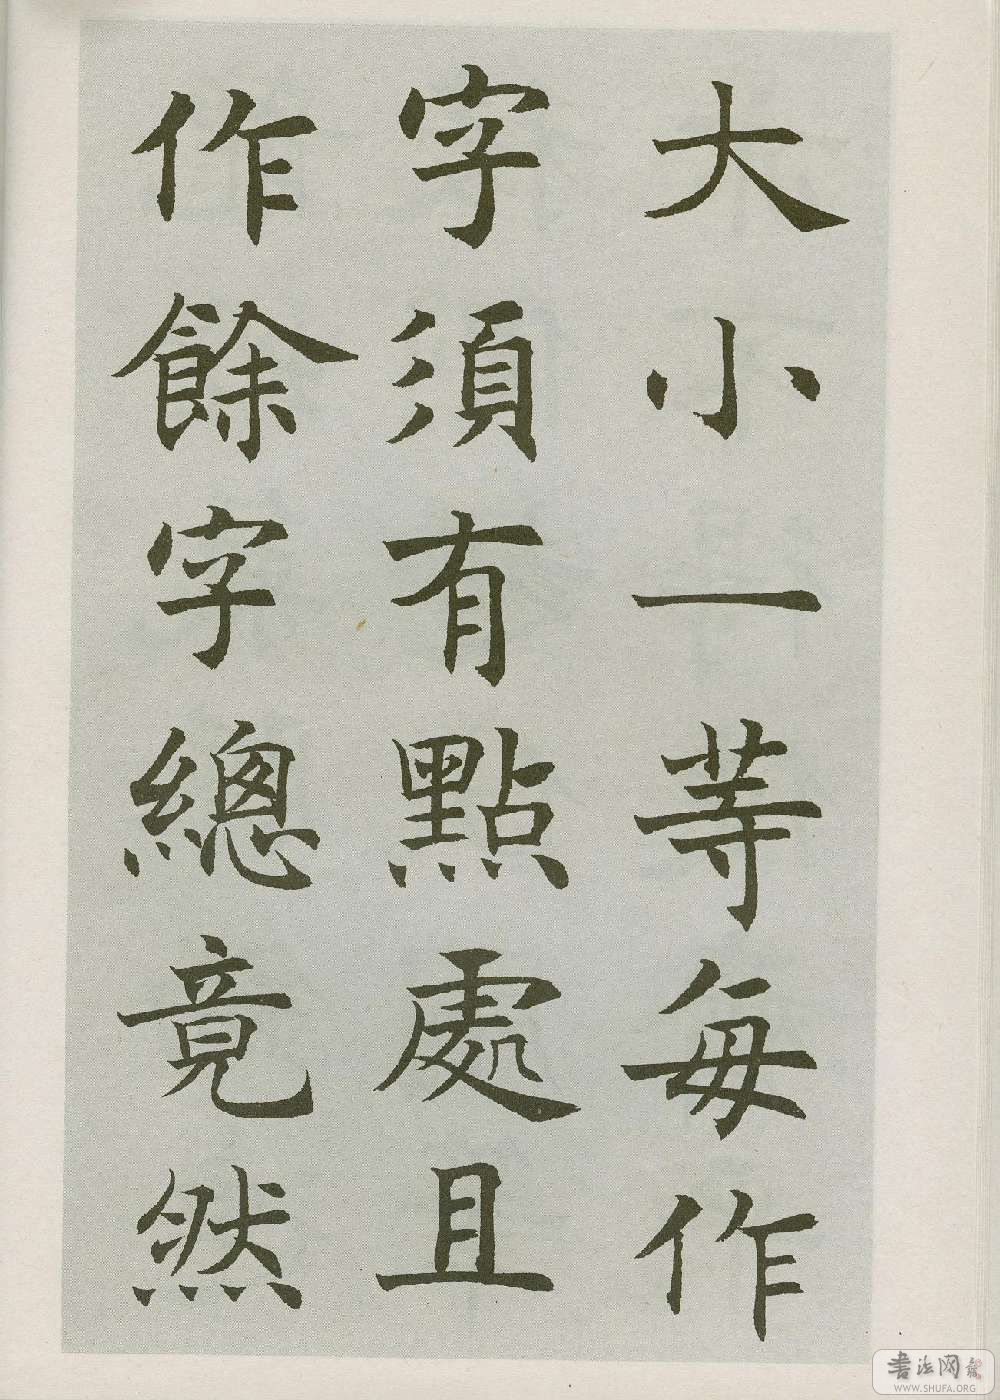 大小一等每作
字須有點處且
作餘字總竟然
書法网
WWW.SHUFA.ORG